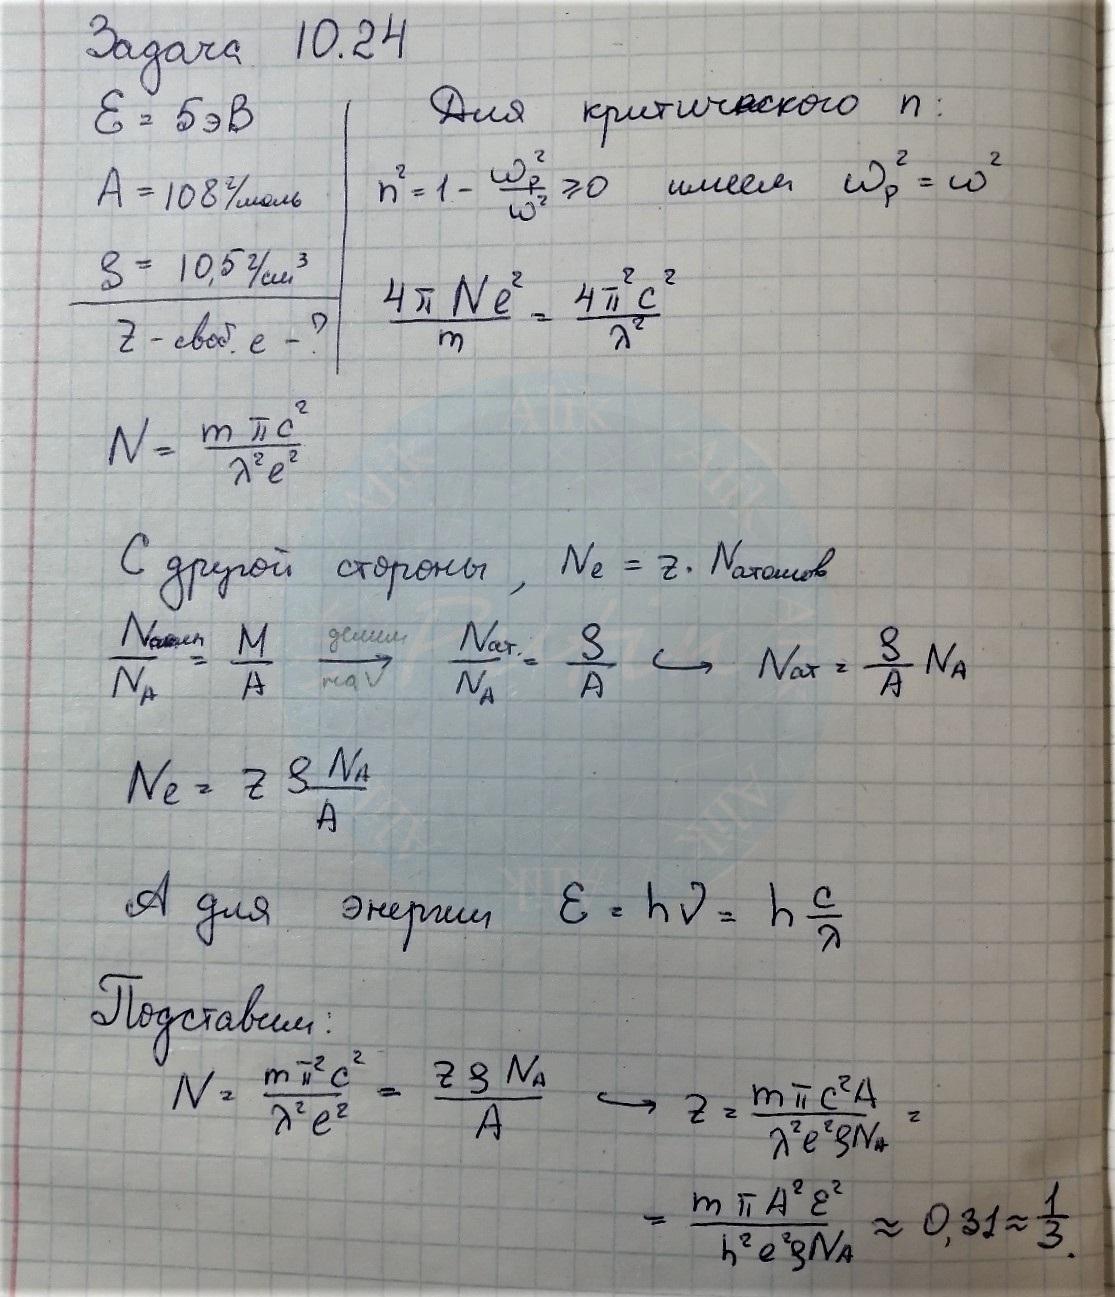 Задача 10.24
Ɛ = 5эВ
A = 108 г/моль
ρ = 10,5 г/см³
z - своб. e - ?
Для критического n:
n² = 1 - ωp²/ω² ⩾ 0 имеем ωp² = ω²
4π Ne²/m = 4π²c²/λ²
N = mπc²/λ²e²
С другой стороны, Ne = z · Nатомов
Nатом/NA = M/A делим на V → Nат./NA = ρ/A ↪ Nат = ρ/A NA
Ne = z ρ NA/A
А для энергии Ɛ = hν = h c/λ
Подставим:
N = mπ²c²/λ²e² = zρNA/A ↪ z = mπc²A/λ²e²ρNA =
= mπA²Ɛ²/h²e²ρNA ≈ 0,31 ≈ 1/3.
AliK
AliK
AliK
AliK
AliK
AliK
AliK